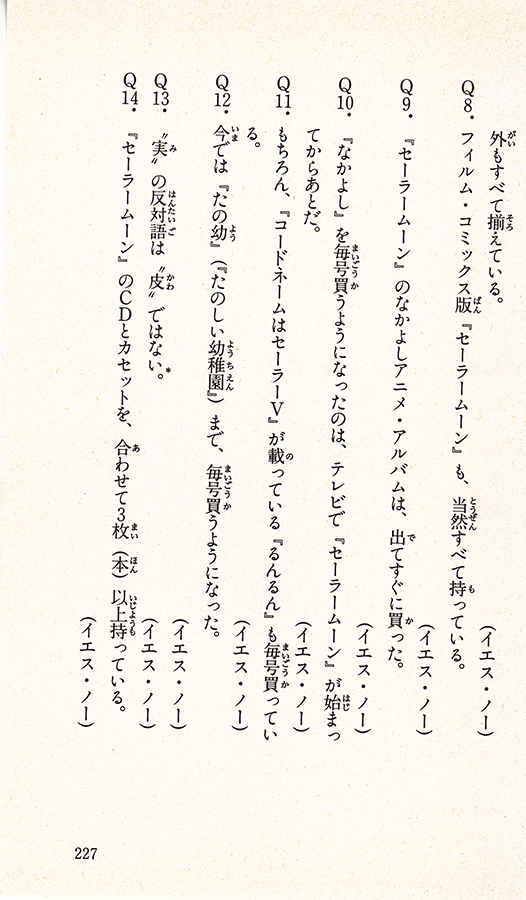 外もすべて揃えている。
（イエス・ノー）
Q8．フィルム・コミックス版『セーラームーン』も、当然すべて持っている。
（イエス・ノー）
Q9．『セーラームーン』のなかよしアニメ・アルバムは、出てすぐに買った。
（イエス・ノー）
Q10．『なかよし』を毎号買うようになったのは、テレビで『セーラームーン』が始まっ
てからあとだ。
（イエス・ノー）
Q11．もちろん、『コードネームはセーラーV』が載っている『るんるん』も毎号買ってい
る。
（イエス・ノー）
Q12．今では『たの幼』（『たのしい幼稚園』）まで、毎号買うようになった。
（イエス・ノー）
Q13．〝実〟の反対語は〝皮〟ではない。*
（イエス・ノー）
Q14．『セーラームーン』のCDとカセットを、合わせて3枚（本）以上持っている。
（イエス・ノー）
227